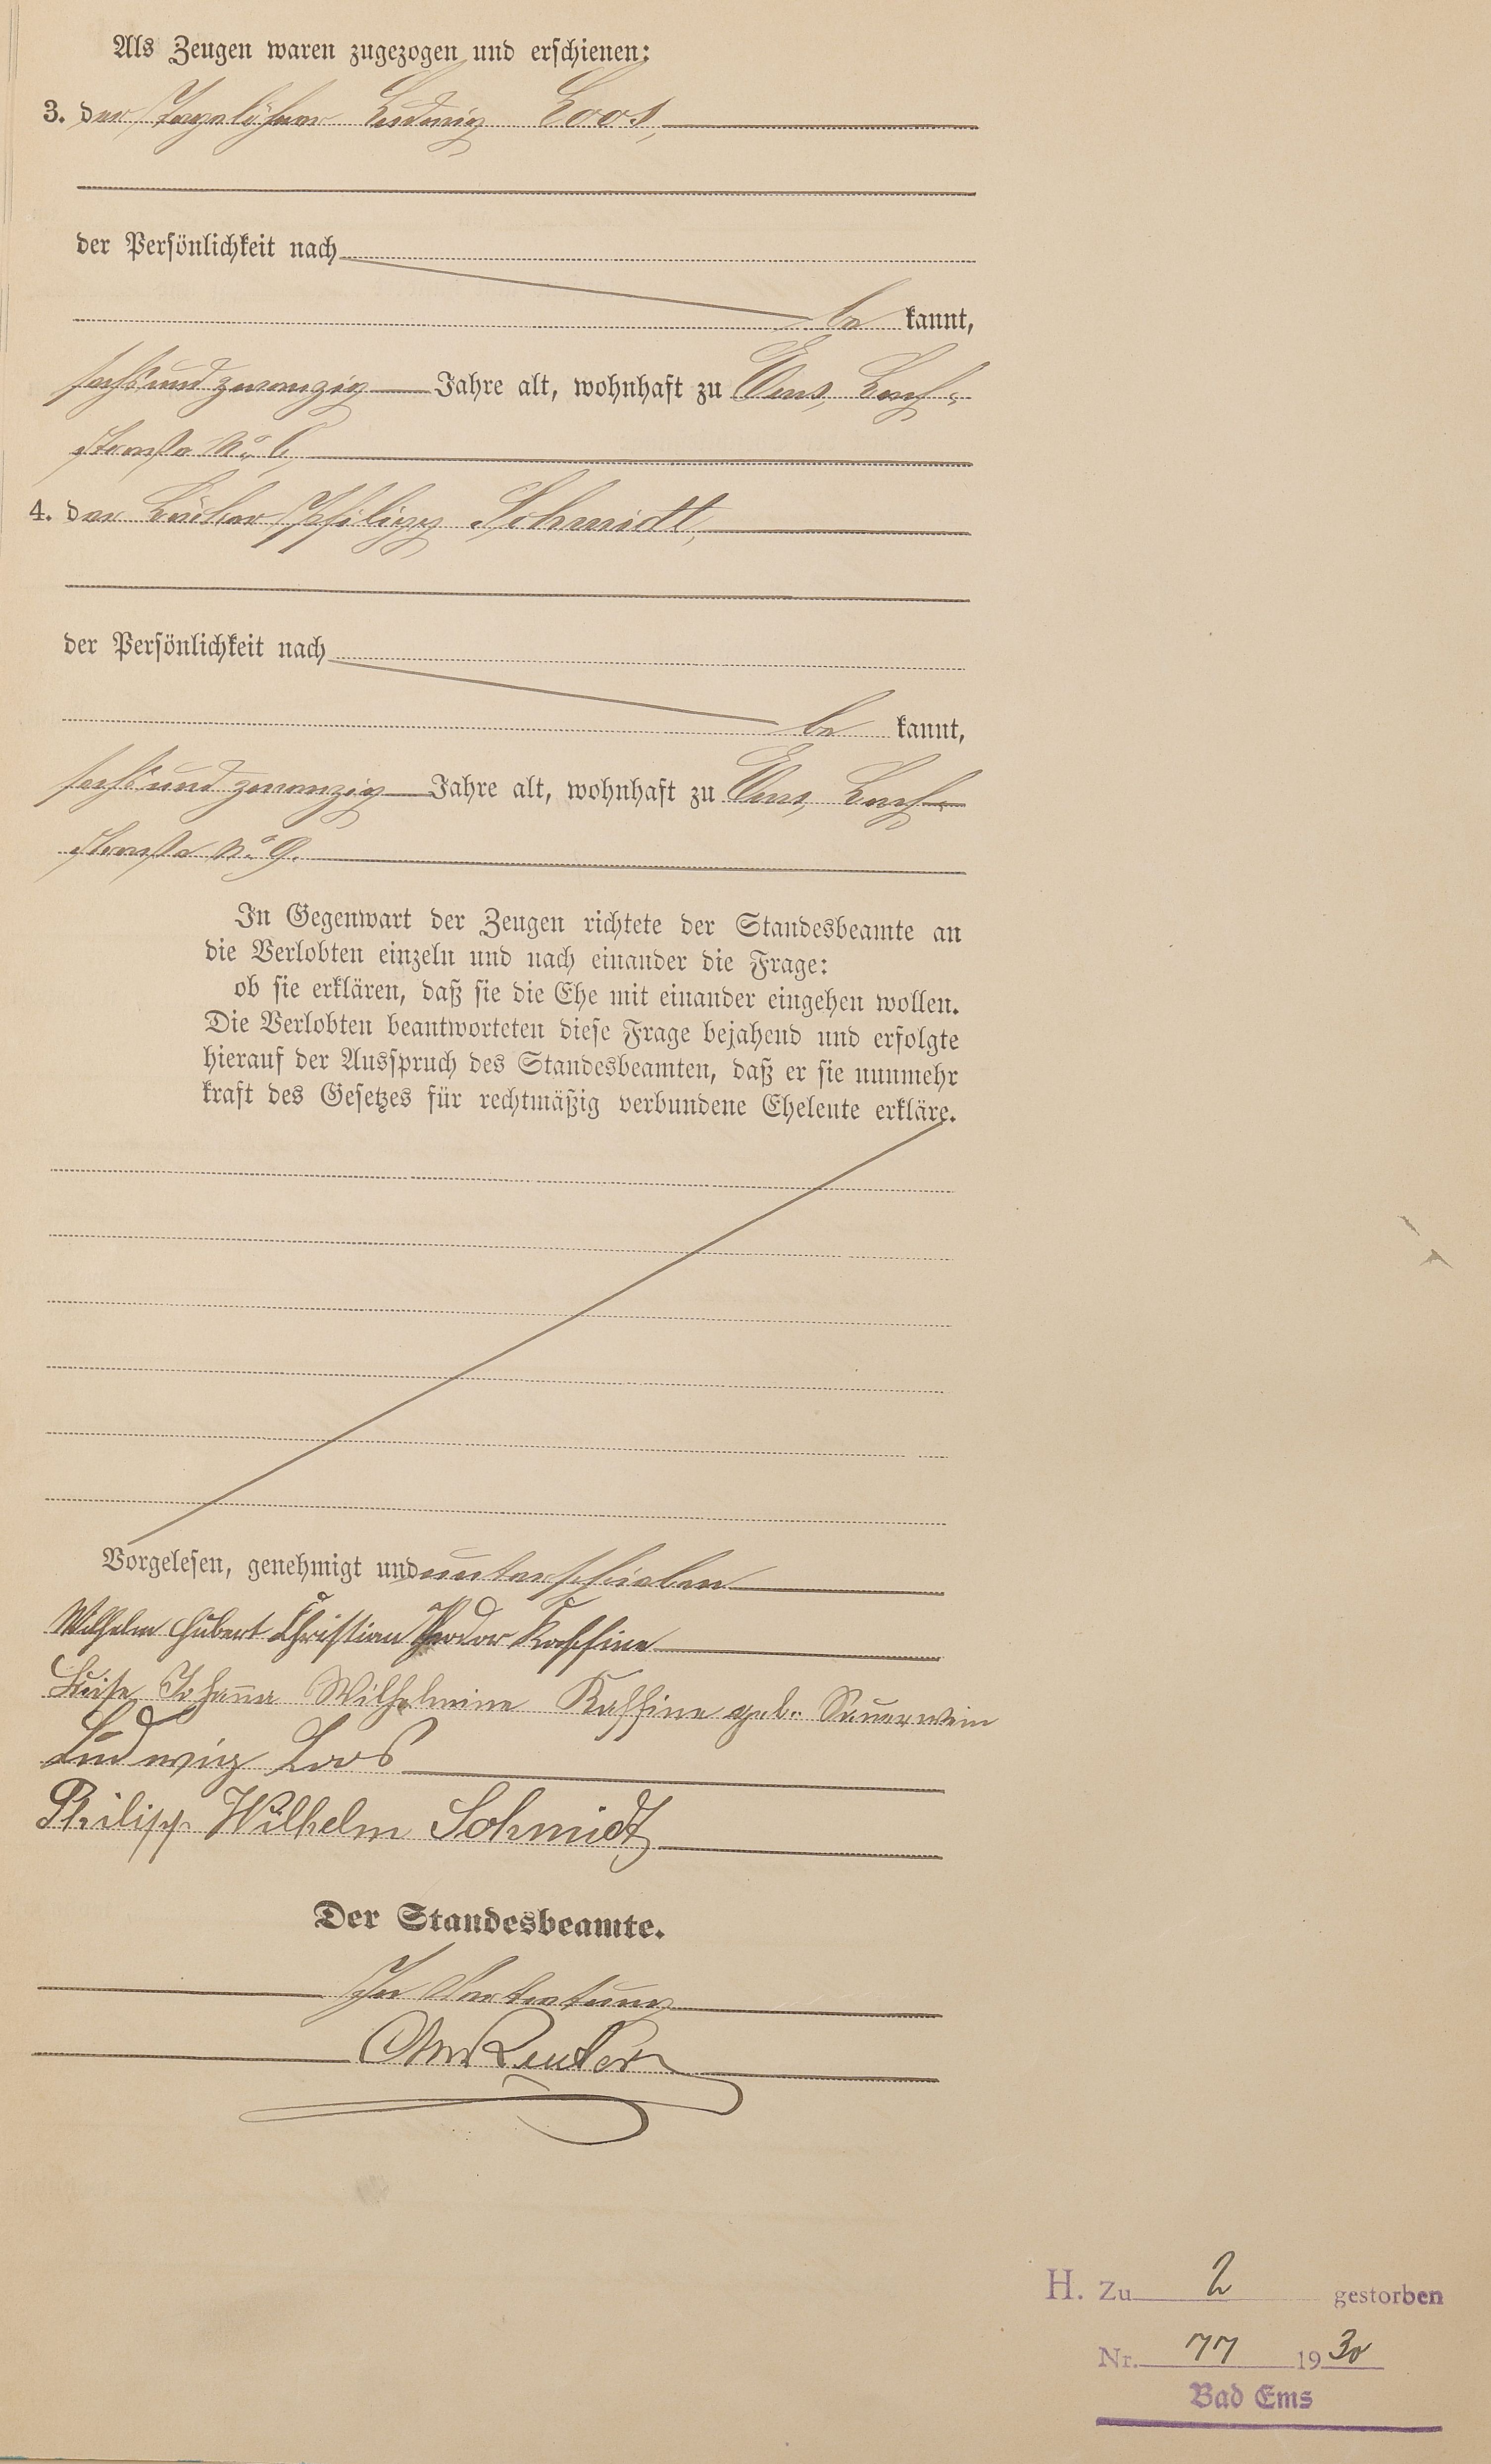 Als Zeugen waren zugezogen und erschienen:
3. der Tagelöhner Ludwig Loos,
der Persönlichkeit nach
be kannt,
sechsundzwanzig Jahre alt, wohnhaft zu Ems, Lahn-
straße No. 6,
4. der Bäcker Philipp Schmidt,
der Persönlichkeit nach
be kannt,
sechsundzwanzig Jahre alt, wohnhaft zu Ems,
straße No. 9.
In Gegenwart der Zeugen richtete der Standesbeamte an
die Verlobten einzeln und nach einander die Frage:
ob sie erklären, daß sie die Ehe mit einander eingehen wollen.
Die Verlobten beantworteten diese Frage bejahend und erfolgte
hierauf der Ausspruch des Standesbeamten, daß er sie nunmehr
kraft des Gesetzes für rechtmäßig verbundene Eheleute erkläre.
Vorgelesen, genehmigt und unterschrieben
Wilhelm Hubert Christian Theodor Kaffine
Luise Johanna Wilhelmine Kaffine geb. Sauerwein
Ludwig Loos
Philipp Wilhelm Schmidt
Der Standesbeamte.
In Vertretung
Reuter
H. Zu 2 gestorben
Nr. 77 1930
Bad Ems